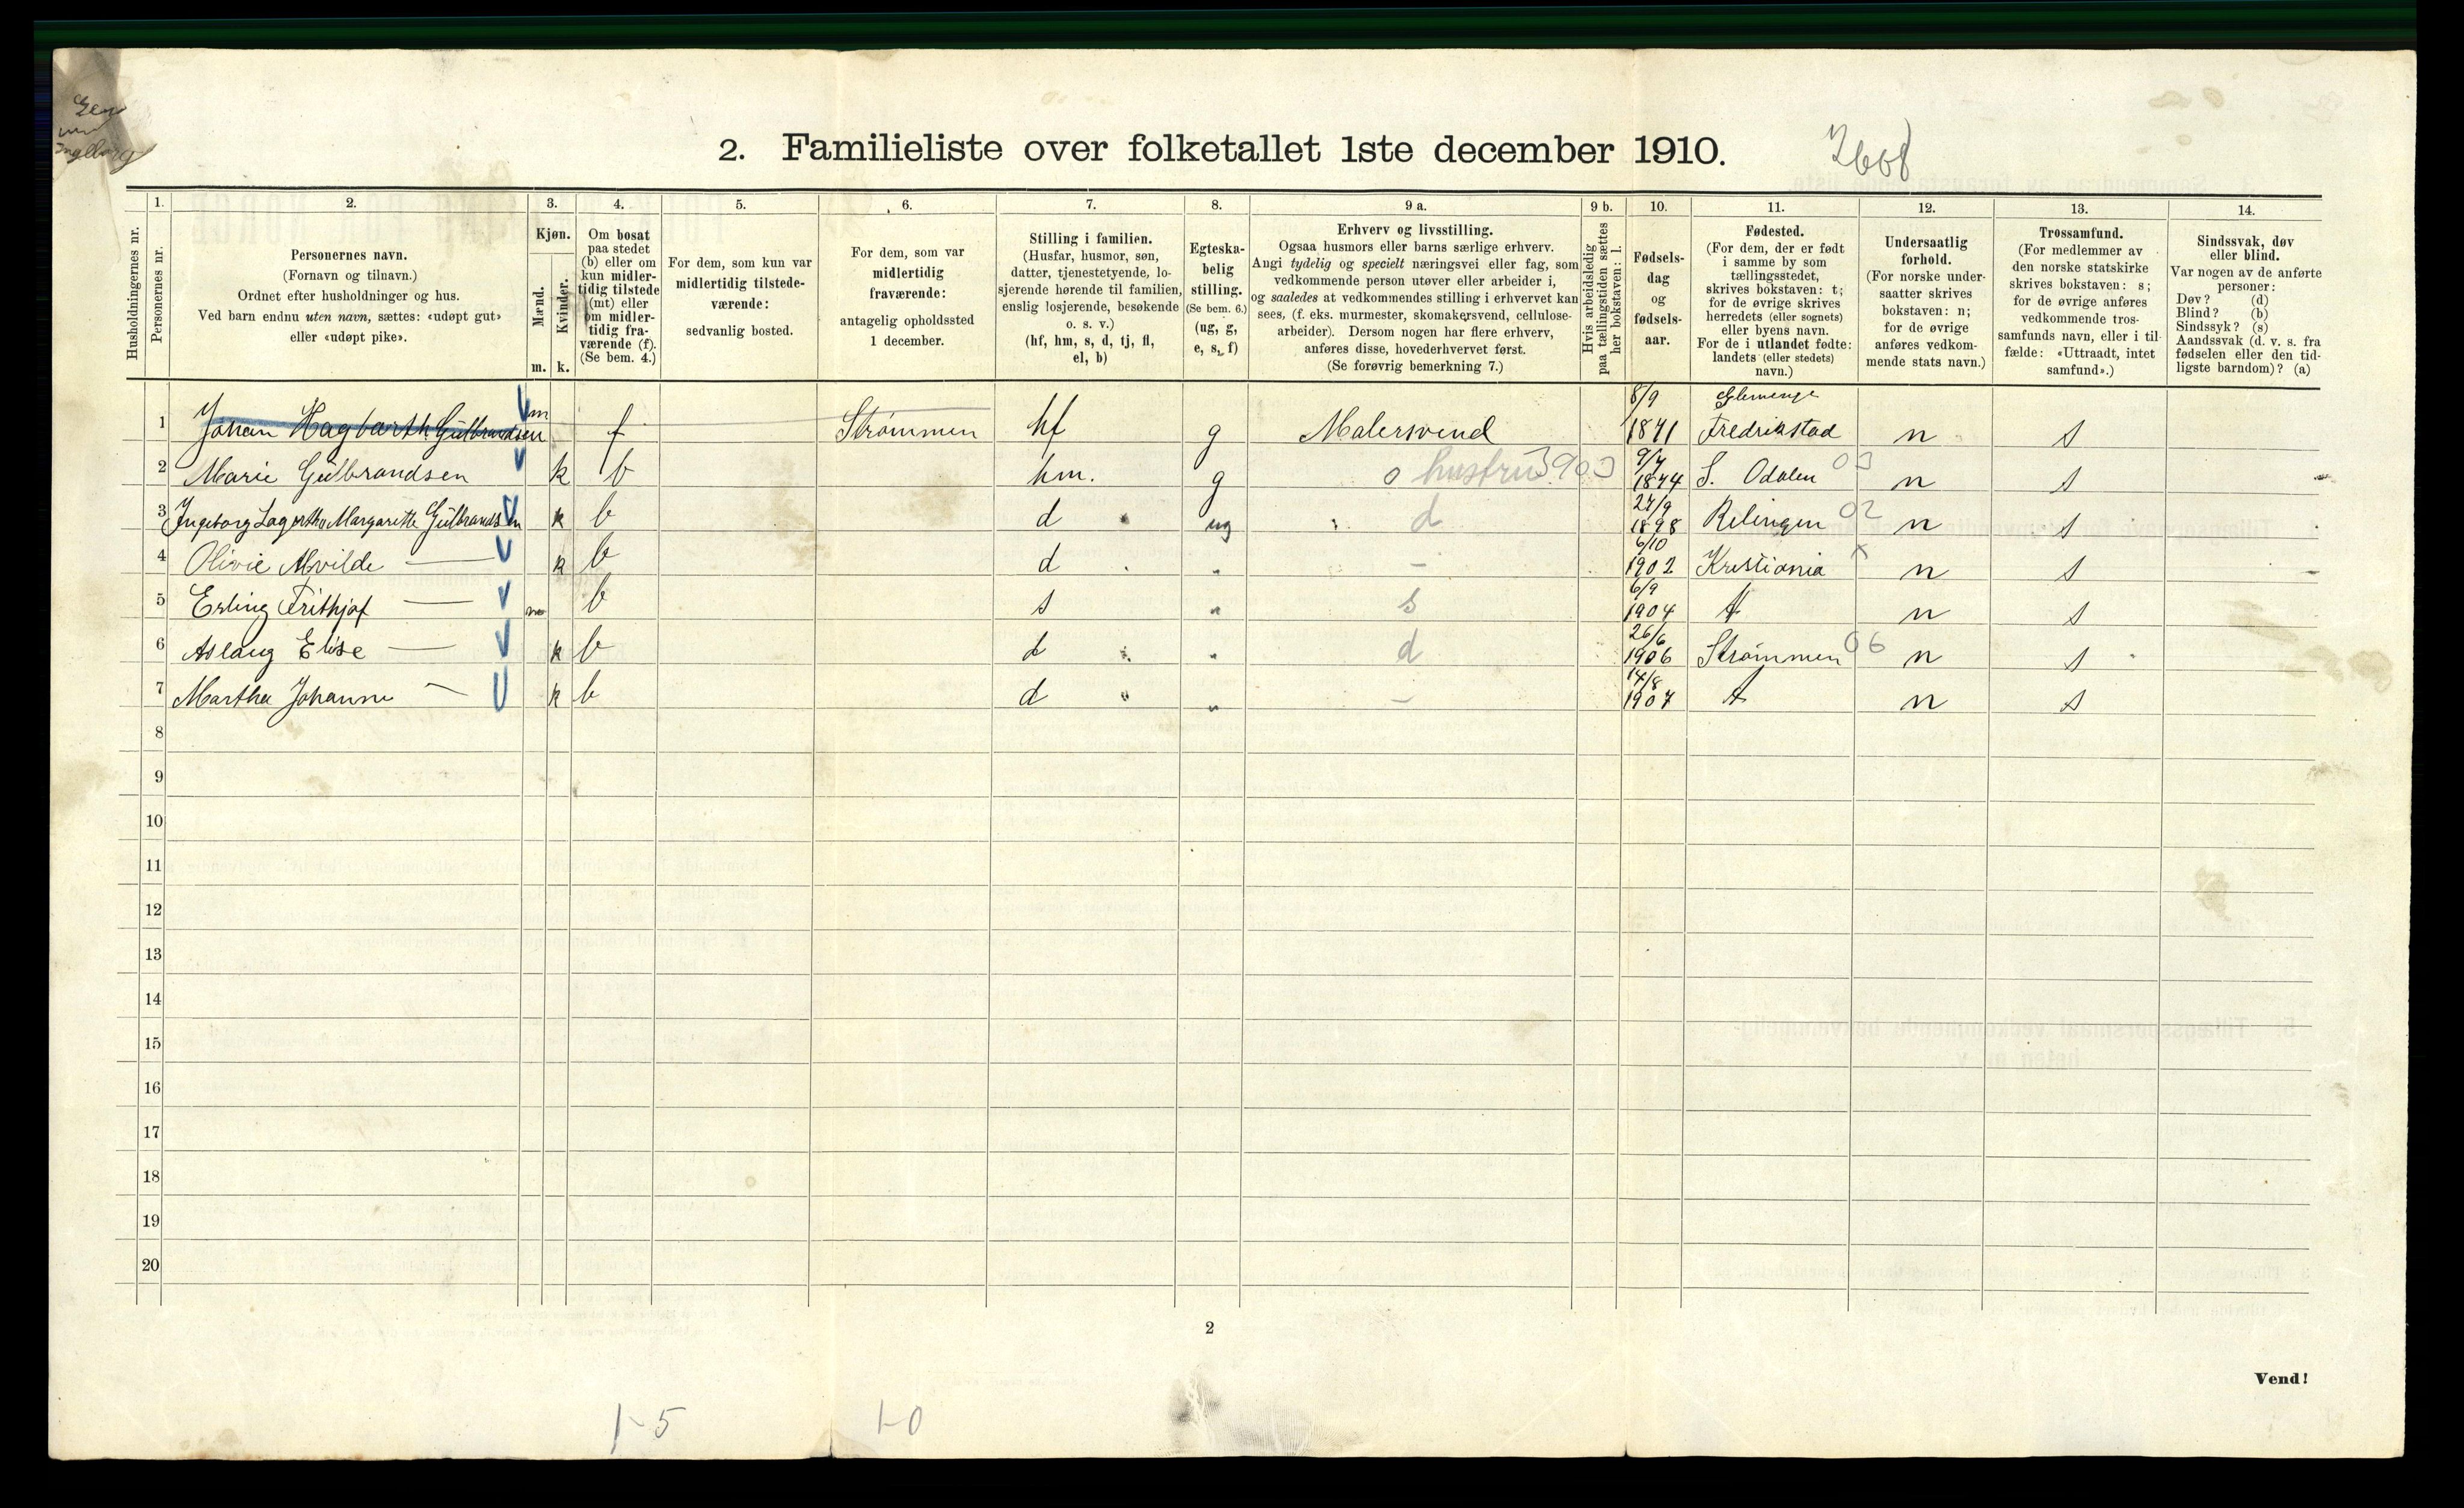 2. Familieliste over folketallet 1ste december 1910.
Husholdningernes nr.
1.
Personernes nr.
2.
Personernes navn.
(Fornavn og tilnavn.)
Ordnet efter husholdninger og hus.
Ved barn endnu uten navn, sættes: «udøpt gut»
eller «udøpt pike».
3.
Kjøn.
Mænd.
Kvinder.
m. k.
4.
Om bosat
paa stedet
(b) eller om
kun midler-
tidig tilstede
(mt) eller
om midler-
tidig fra-
værende (f).
(Se bem. 4.)
5.
For dem, som kun var
midlertidig tilstede-
værende:
sedvanlig bosted.
6.
For dem, som var
midlertidig
fraværende:
antagelig opholdssted
1 december.
7.
Stilling i familien.
(Husfar, husmor, søn,
datter, tjenestetyende, lo-
sjerende hørende til familien,
enslig losjerende, besøkende
o. s. v.)
(hf, hm, s, d, tj, fl,
el, b)
8.
Egteska-
belig
stilling.
(Se bem. 6.)
(ug, g,
e, s, f)
9 a.
Erhverv og livsstilling.
Ogsaa husmors eller barns særlige erhverv.
Angi tydelig og specielt næringsvei eller fag, som
vedkommende person utøver eller arbeider i,
og saaledes at vedkommendes stilling i erhvervet kan
sees, (f. eks. murmester, skomakersvend, cellulose-
arbeider). Dersom nogen har flere erhverv,
anføres disse, hovederhvervet først.
(Se forøvrig bemerkning 7.)
9 b.
Hvis arbeidsledig
paa tællingstiden sættes
her bokstaven: l.
10.
Fødsels-
dag
og
fødsels-
aar.
11.
Fødested.
(For dem, der er født
i samme by som
tællingsstedet,
skrives bokstaven: t;
for de øvrige skrives
herredets (eller sognets)
eller byens navn.
For de i utlandet fødte:
landets (eller stedets)
navn.)
12.
Undersaatlig
forhold.
(For norske under-
saatter skrives
bokstaven: n;
for de øvrige
anføres vedkom-
mende stats navn.)
13.
Trossamfund.
(For medlemmer av
den norske statskirke
skrives bokstaven: s;
for de øvrige anføres
vedkommende tros-
samfunds navn, eller i til-
fælde: «Uttraadt, intet
samfund».)
14.
Sindssvak, døv
eller blind.
Var nogen av de anførte
personer:
Døv? (d)
Blind? (b)
Sindssyk? (s)
Aandssvak (d. v. s. fra
fødselen eller den tid-
ligste barndom)? (a)
1 Johan Hagbarth Gulbrandsen m f Strømmen hf g Malersvend 8/9 1871 Glemenge Fredrikstad n s
2 Marie Gulbrandsen k b hm. g o hustru 9/7 1874 S. Odalen 03 n s
3 Ingeborg Lagertha Margarethe Gulbrandsen k b d ug d 27/9 1898 Relingen 02 n s
4 Olivie Alvilde — k b d " - 6/10 1902 Kristiania x n s
5 Erling Frithjof — m b s " s 6/9 1904 t n s
6 Aslaug Elise — k b d " d 26/6 1906 Strømmen 06 n s
7 Martha Johanne — k b d " - 14/8 1907 t n s
8
9
10
11
12
13
14
15
16
17
18
19
20
2
Vend!
1-5 1-0